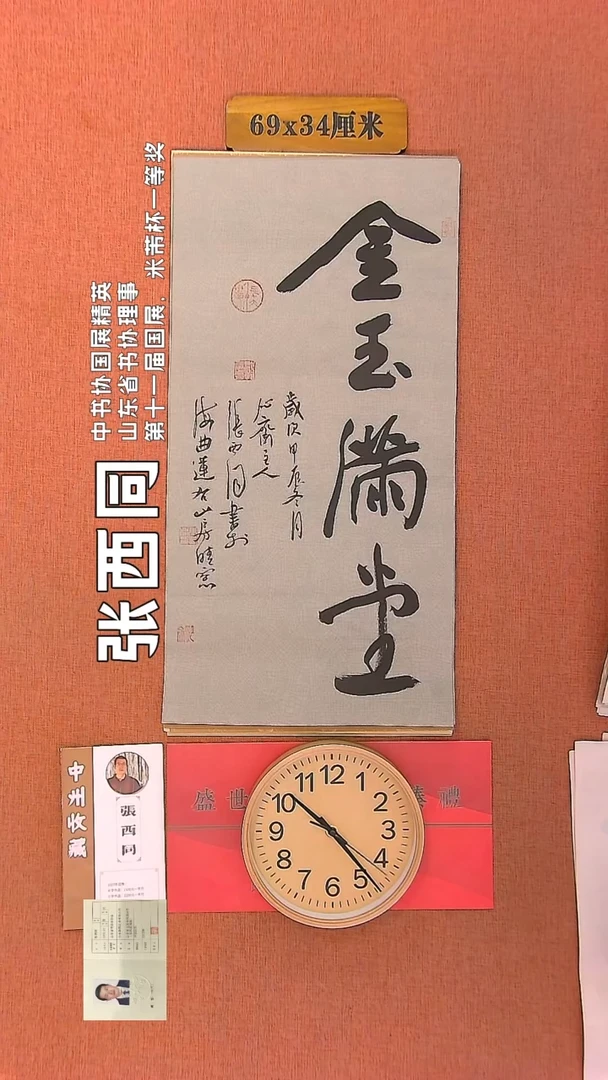 69x34厘米
金玉满堂
歲次甲辰冬月
心齋主人
張西同書於
海曲蓮右山房晴窓
张西同
中书协国展精英
山东省书协理事
第十一届国展、米芾杯一等奖
盛世
禮
12
1
2
3
4
5
6
7
8
9
10
11
張西同